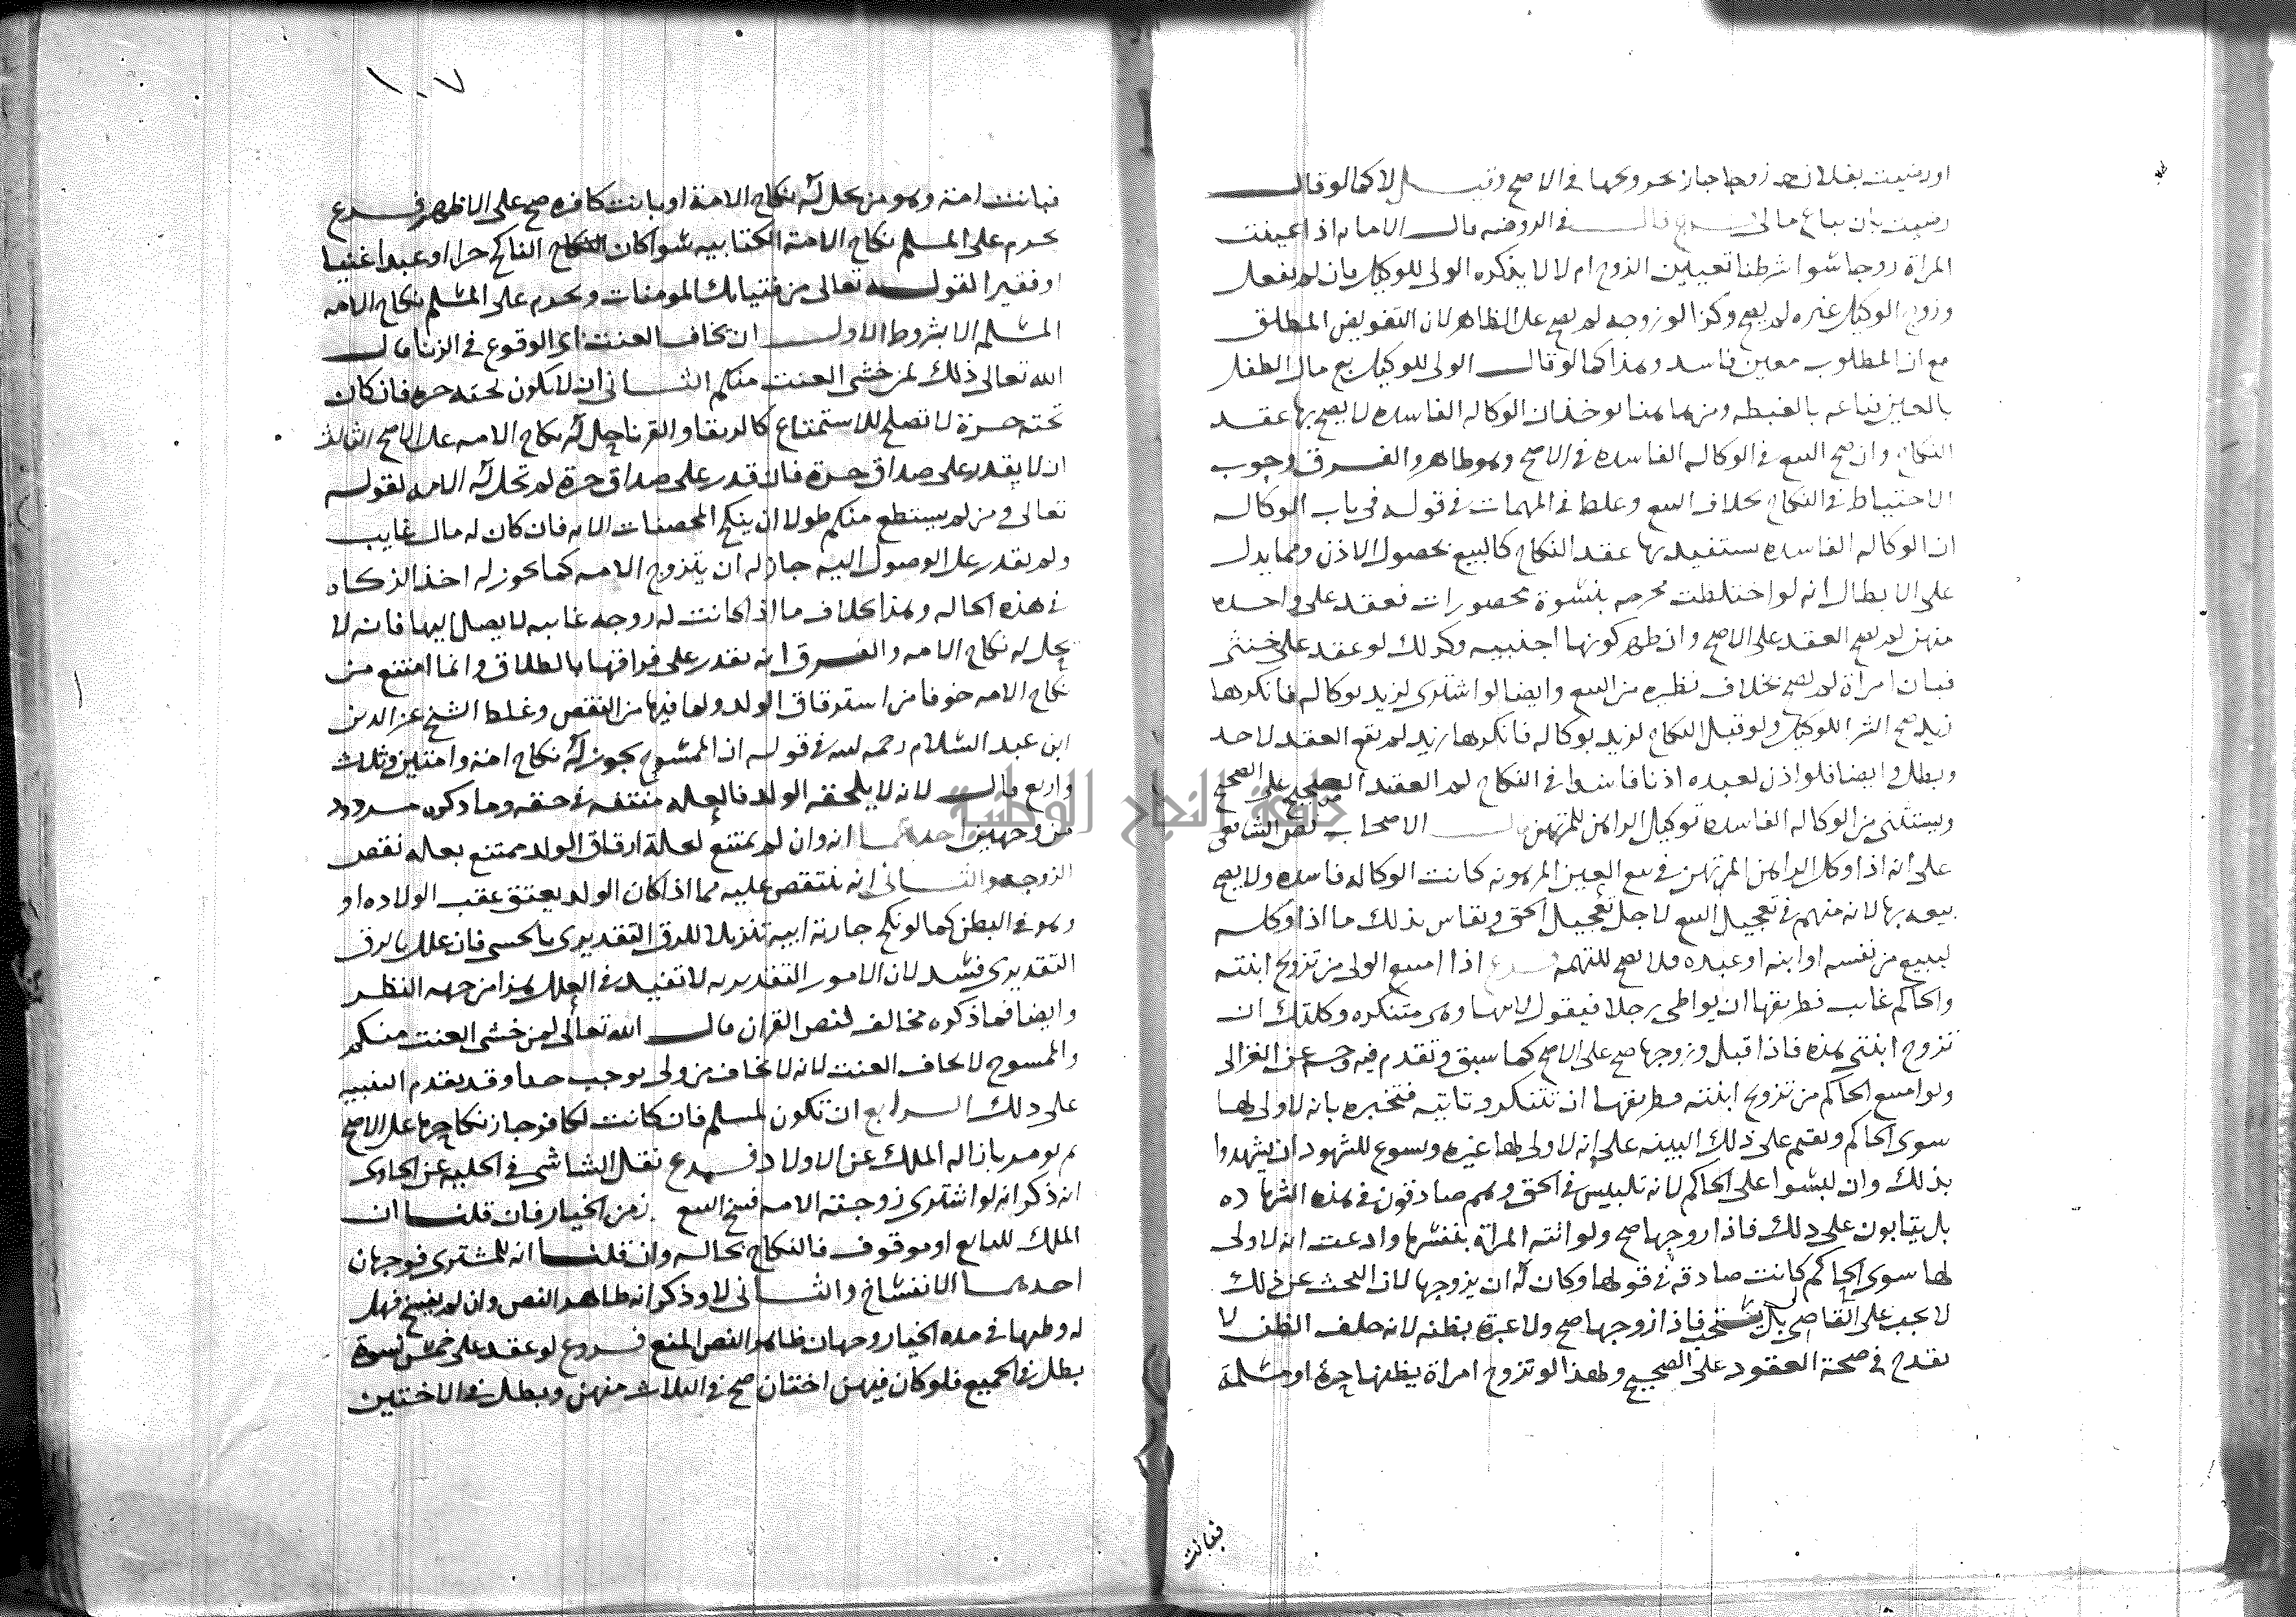 او رضيت بفلان زوجا جاز تزويجها في الاصح وقيل لا كما لو قالت
رضيت بان يباع مالي فرع قال في الروضه قال الامام اذا عينت
المراة زوجا سوا شرطنا تعيين الزوج ام لا لا يذكره الولي للوكيل فان لم يفعل
وزوج الوكيل غيره لم يصح وكذا لو زوجه لم يصح على الظاهر لان التفويض المطلق
مع ان المطلوب معين فاسد وهذا كما لو قال الولي للوكيل بع مال الطفل
بالعين فباعه بالغبطه ومن هاهنا يوخذ ان الوكاله الفاسده لا يصح بها عقد
النكاح وان صح البيع في الوكاله الفاسده في الاصح وهو ظاهر والفرق وجوب
الاحتياط في النكاح بخلاف البيع وغلط في المهمات في قوله في باب الوكاله
ان الوكاله الفاسده يستفيد بها عقد النكاح كالبيع بحصول الاذن ومما يدل
على الابطال انه لو اختلطت محرمه بنسوة محصورات فعقد على واحده
منهن لم يصح العقد على الاصح وان ظهر كونها اجنبيه وكذلك لو عقد على خنثى
فبان امراة لم يصح بخلاف نظيره من البيع وايضا لو اشترى لزيد بوكاله فانكرها
زيد صح الشرا للوكيل ولو قبل النكاح لزيد بوكاله فانكرها زيد لم يقع العقد لاحد
وبطل وايضا فلو اذن لعبده اذنا فاسدا في النكاح لم العقد الصحيح على الصحيح
ويستثنى من الوكاله الفاسده توكيل الراهن للمرتهن قال الاصحاب نص الشافعي
على انه اذا وكل الراهن المرتهن في بيع العين المرهونه كانت الوكاله فاسده ولا يصح
بيعه بها لانه متهم في تعجيل البيع لاجل تعجيل الحق وقاس بذلك ما اذا وكله
ليبيع من نفسه او ابنه او عبده فلا يصح للتهمه فرع اذا امتنع الولي من تزويج ابنته
والحاكم غايب فطريقها ان يواطي رجلا فيقول لابيها وهي متنكره وكلتك ان
تزوج ابنتي هذه فاذا قبل وزوجها صح على الاصح كما سبق وتقدم فيه وجه عن الغزالي
ولو امتنع الحاكم من تزويج ابنته فطريقها ان تتنكر وتاتيه فتخبره بانه لا ولي لها
سوى الحاكم وتقيم على ذلك البينه على انه لا ولي لها غيره ويسوغ للشهود ان يشهدوا
بذلك وان لبسوا على الحاكم لانه تلبيس في الحق وهم صادقون في هذه الشهاده
بل يثابون على ذلك فاذا زوجها صح ولو اتته المراة بنفسها وادعت انه لا ولي
لها سوى الحاكم كانت صادقه في قولها وكان له ان يزوجها لان البحث عن ذلك
لا يجب على القاضي بل يستحب فاذا زوجها صح ولا عبرة بظنه لانه خلف الظن لا
يقدح في صحة العقود على الصحيح ولهذا لو تزوج امراة يظنها حرة او مسلمة
فبانت
١٠٧
فبانت امة وهو من يحل له نكاح الامة او بانت كافره صح على الاظهر فرع
يحرم على المسلم نكاح الامة الكتابيه سوا كان الناكح حرا او عبدا غنيا
او فقيرا لقوله تعالى من فتياتك المومنات ويحرم على المسلم نكاح الامه
المسلمه الا بشروط الاول ان يخاف العنت اي الوقوع في الزنا قال
الله تعالى ذلك لمن خشي العنت منكم الثاني ان لا يكون تحته حره فان كان
تحته حرة لا تصلح للاستمتاع كالرتقا والقرنا حل له نكاح الامه على الاصح الثالث
ان لا يقدر على صداق حرة فان قدر على صداق حرة لم تحل له الامه لقوله
تعالى ومن لم يستطع منكم طولا ان ينكح المحصنات الايه فان كان له مال غايب
ولم يقدر على الوصول اليه جاز له ان يتزوج الامه كما يجوز له اخذ الزكاه
في هذه الحاله وهذا بخلاف ما اذا كانت له زوجه غايبه لا يصل اليها فانه لا
يحل له نكاح الامه والفرق انه يقدر على فراقها بالطلاق وانما امتنع من
نكاح الامه خوفا من استرقاق الولد ولما فيها من النقص وغلط الشيخ عز الدين
ابن عبد السلام رحمه الله في قوله ان الممسوح يجوز له نكاح امة وامتين وثلاث
واربع قال لانه لا يلحقه الولد فالعله منتفه في حقه وما ذكره مردود
من وجهين احدهما انه وان لم يمتنع لعلة ارقاق الولد يمتنع بعله نقص
الزوجه والثاني انه ينتقض عليه مما اذا كان الولد يعتق عقب الولاده او
وهو في البطن كما لو نكح جارية ابيه تنزيلا للرق التقديري بالحسي فان علل بالرق
التقديري فسد لان الامور التقديريه لا تفيد في العلل هذا من جهه النظر
وايضا فما ذكره مخالف لنص القران قال الله تعالى لمن خشي العنت منكم
والممسوح لا يخاف العنت لانه لا يخاف من ولي يوجب حدا وقد تقدم التنبيه
على ذلك الرابع ان تكون لمسلم فان كانت لكافر جاز نكاح حرها على الاصح
ثم يومر بازاله الملك عن الاولاد فرع نقل الشاشي في الحليه عن الحاوي
انه ذكر انه لو اشترى زوجته الامه فسخ البيع زمن الخيار فان قلنا ان
الملك للبايع او موقوف فالنكاح بحاله وان قلنا انه للمشتري فوجهان
احدهما الانفساخ والثاني لا وذكر انه ظاهر النص وان لم ينفسخ فهل
له وطيها في مده الخيار وجهان ظاهر النص المنع فروع لو عقد على خمس نسوة
بطل في الجميع فلو كان فيهن اختان صح في الثلاث منهن وبطل في الاختين